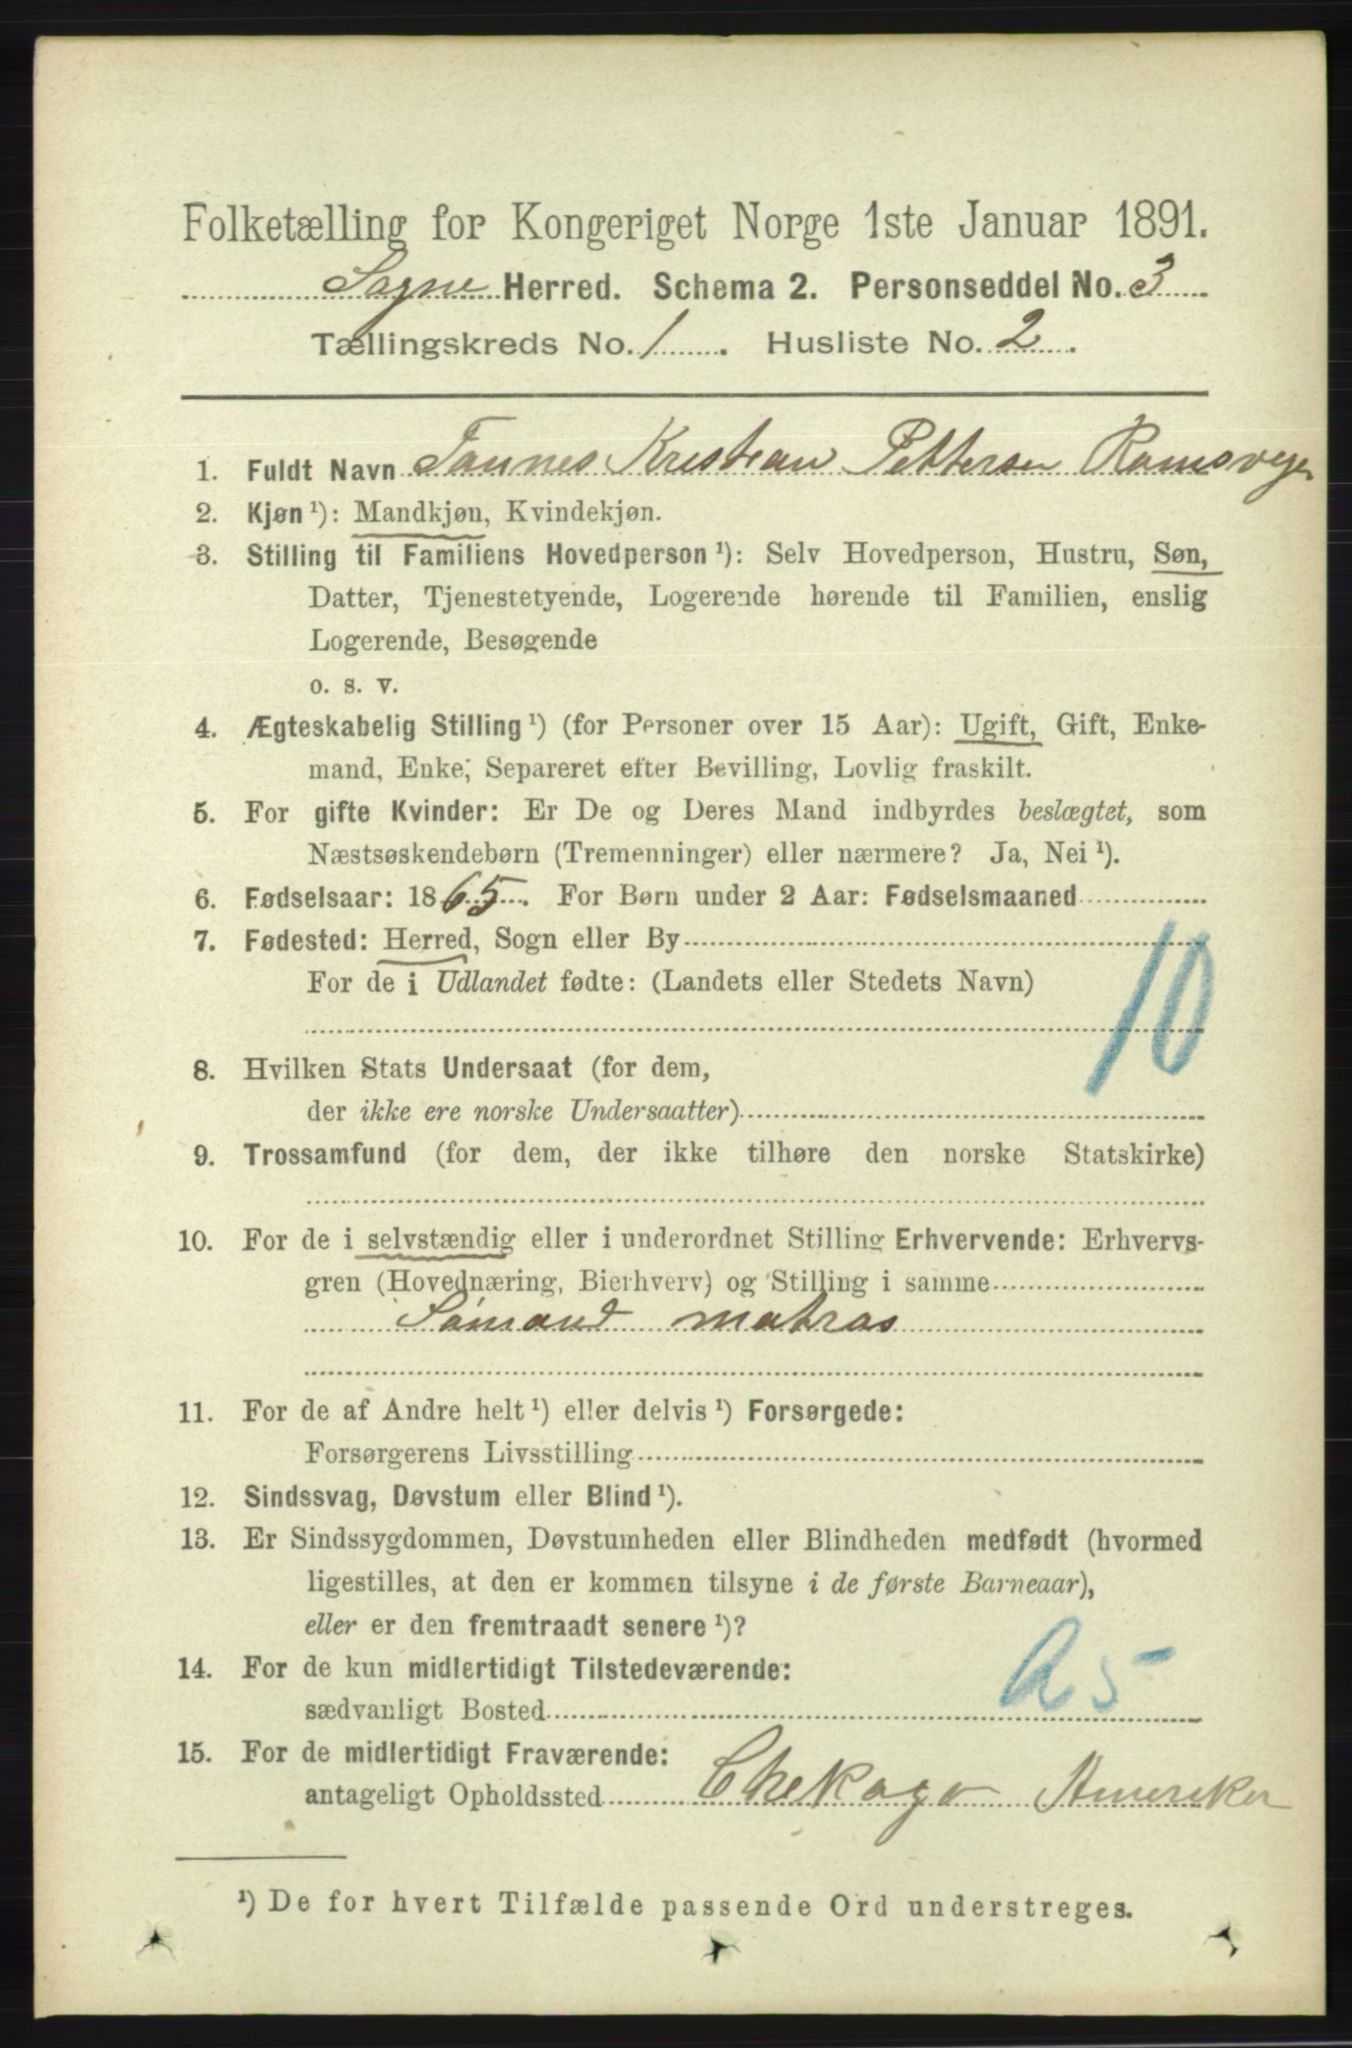 Folketælling for Kongeriget Norge 1ste Januar 1891.
Søgne Herred. Schema 2. Personseddel No. 3
Tællingskreds No. 1. Husliste No. 2.
1. Fuldt Navn Tannes Kristean Pettersen Ramsvegen
2. Kjøn ¹): Mandkjøn, Kvindekjøn.
3. Stilling til Familiens Hovedperson ¹): Selv Hovedperson, Hustru, Søn,
Datter, Tjenestetyende, Logerende hørende til Familien, enslig
Logerende, Besøgende
o. s. v.
4. Ægteskabelig Stilling ¹) (for Personer over 15 Aar): Ugift, Gift, Enke-
mand, Enke, Separeret efter Bevilling, Lovlig fraskilt.
5. For gifte Kvinder: Er De og Deres Mand indbyrdes beslægtet, som
Næstsøskendebørn (Tremenninger) eller nærmere? Ja, Nei ¹).
6. Fødselsaar: 1865. For Børn under 2 Aar: Fødselsmaaned
7. Fødested: Herred, Sogn eller By
For de i Udlandet fødte: (Landets eller Stedets Navn)
10
8. Hvilken Stats Undersaat (for dem,
der ikke ere norske Undersaatter)
9. Trossamfund (for dem, der ikke tilhøre den norske Statskirke)
10. For de i selvstændig eller i underordnet Stilling Erhvervende: Erhvervs-
gren (Hovednæring, Bierhverv) og Stilling i samme
Sømand matras
11. For de af Andre helt ¹) eller delvis ¹) Forsørgede:
Forsørgerens Livsstilling
12. Sindssvag, Døvstum eller Blind ¹).
13. Er Sindssygdommen, Døvstumheden eller Blindheden medfødt (hvormed
ligestilles, at den er kommen tilsyne i de første Barneaar),
eller er den fremtraadt senere ¹)?
14. For de kun midlertidigt Tilstedeværende:
sædvanligt Bosted
a 5
15. For de midlertidigt Fraværende:
antageligt Opholdssted Chekago Ameriken
¹) De for hvert Tilfælde passende Ord understreges.